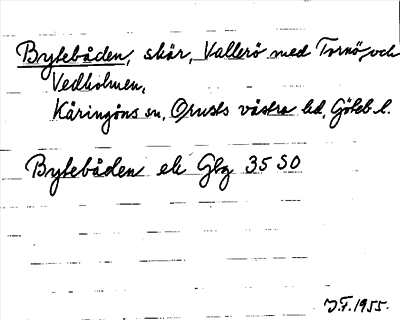 Bytebåden, skär, Vallerö med Tornö och
Vedholmen,
Käringöns sn, Orusts västra hd, Göteb. l.
Bytebåden ek Gbg 35 SO
J.F. 1955.